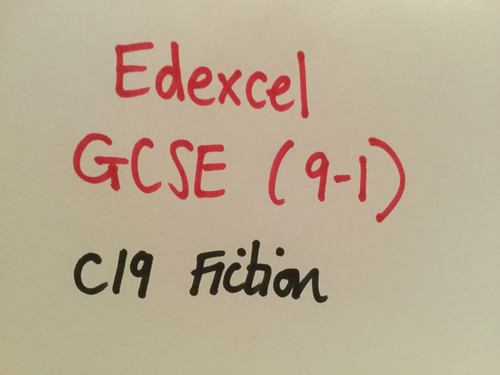 Edexcel
GCSE (9-1)
C19 Fiction